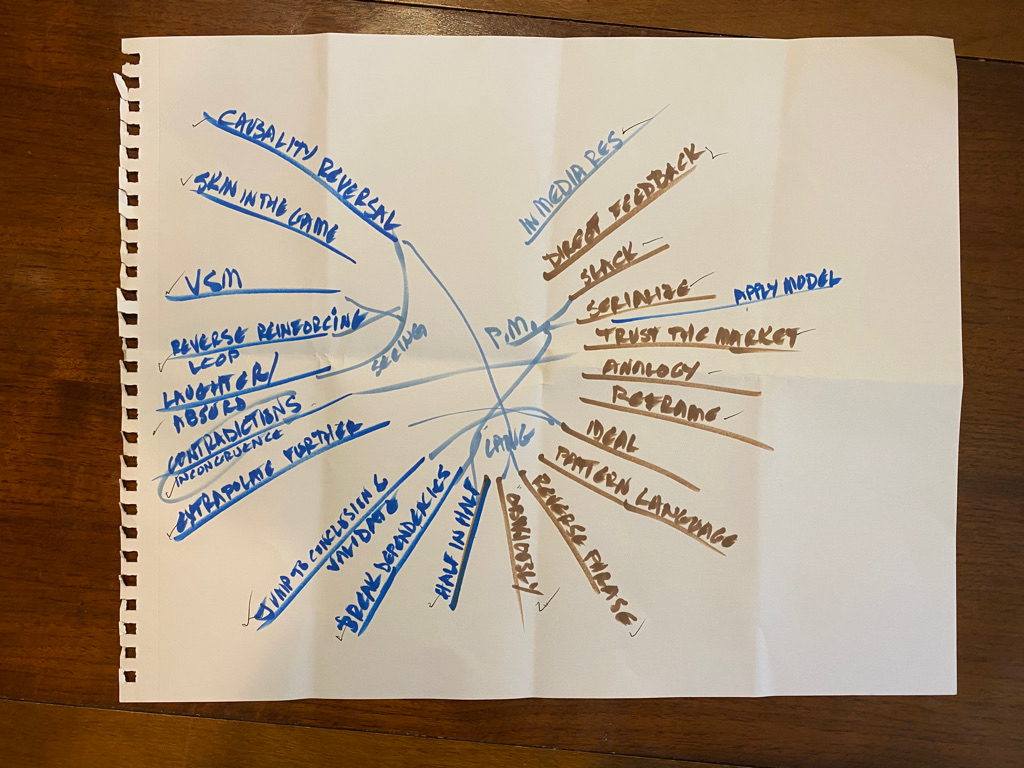 CAUSALITY REVERSAL
SKIN IN THE GAME
VSM
REVERSE REINFORCING
LOOP
LAUGHTER/
ABSURD
CONTRADICTIONS
INCONGRUENCE
EXTRAPOLATE FURTHER
JUMP TO CONCLUSIONS
VALIDATE
BREAK DEPENDENCIES
HALF IN HALF
OBVIOUSLY
REVERSE PHRASE
PATTERN LANGUAGE
IDEAL
REFRAME
ANALOGY
TRUST THE MARKET
SERIALIZE
APPLY MODEL
SLACK
DIRECT FEEDBACK
IN MEDIA RES
SEEING
P.M.
LANG